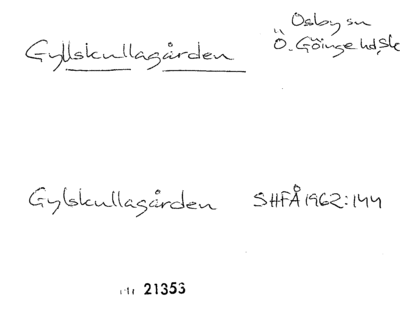 Gyllskullagården
Osby sn
Ö. Göinge hd, Sk
Gylskullagården SHFÅ 1962:144
21353